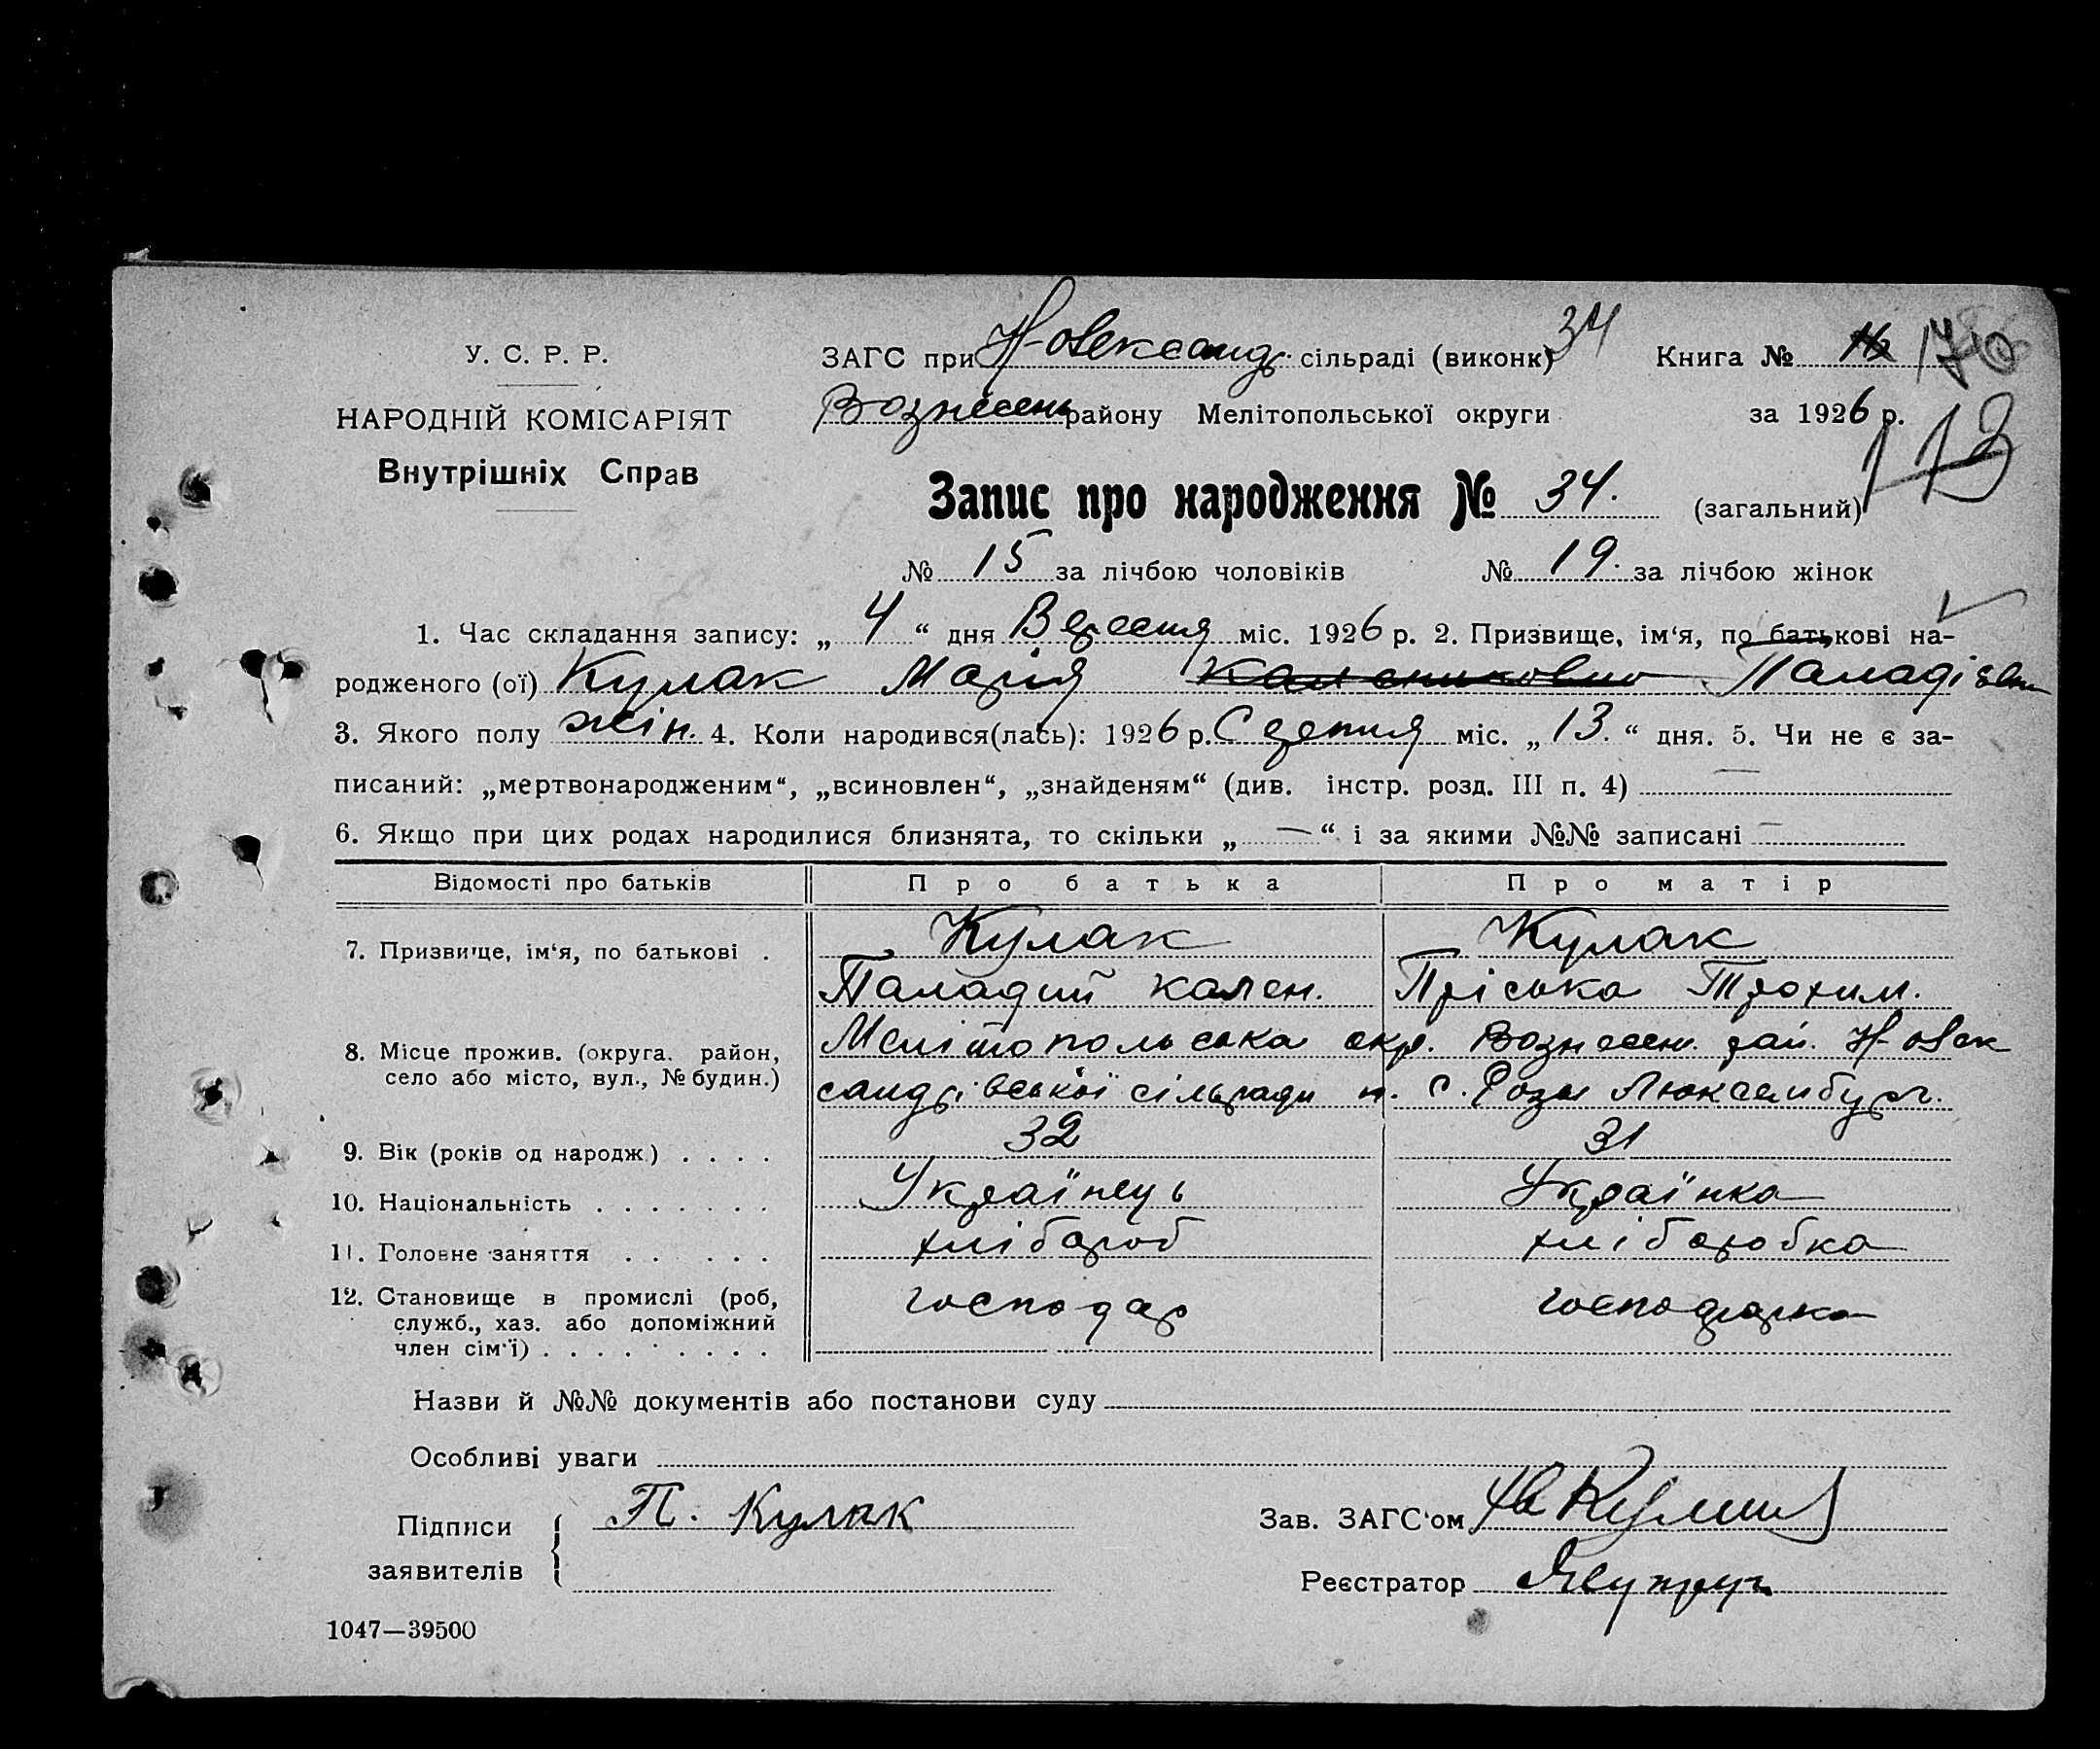 У. С. Р. Р.
НАРОДНІЙ КОМІСАРІЯТ
Внутрішніх Справ
ЗАГС при Н-овександ. сільраді (виконк) 34 Книга №
Вознесень району Мелітопольської округи за 1926 р.
113
Запис про народження № 34. (загальний)
№ 15 за лічбою чоловіків № 19. за лічбою жінок
1. Час складання запису: „ 4 “ дня Вересня міс. 1926 р. 2. Призвище, ім‘я, по батькові на-
родженого (ої) Кулак Марія Калениковно Паладієвн
3. Якого полу жін. 4. Коли народився(лась): 1926 р. Серпня міс. „ 13. “ дня. 5. Чи не є за-
писаний: „мертвонародженим“, „всиновлен“, „знайденям“ (див. інстр. розд. III п. 4) —
6. Якщо при цих родах народилися близнята, то скільки „ — “ і за якими №№ записані —
Відомості про батьків Про батька Про матір
7. Призвище, ім‘я, по батькові . Кулак Кулак
Паладий кален. Пріська Трохим.
8. Місце прожив. (округа. район, село або місто, вул., № будин.) Мелітопольска окр. Вознесен. рай. Н-овек
сандрівської сільради п. с. Розы Люксембург.
9. Вік (років од народж.) . . . . 32 31
10. Національність . . . . . . . Українець Українка
11. Головне заняття . . . . . хлібороб хліборобка
12. Становище в промислі (роб, служб., хаз. або допоміжний член сім‘ї) . . . . . . . . . господар господарка
Назви й №№ документів або постанови суду
Особливі уваги
Підписи заявителів П. Кулак
Зав. ЗАГС‘ом
Реєстратор
1047—39500